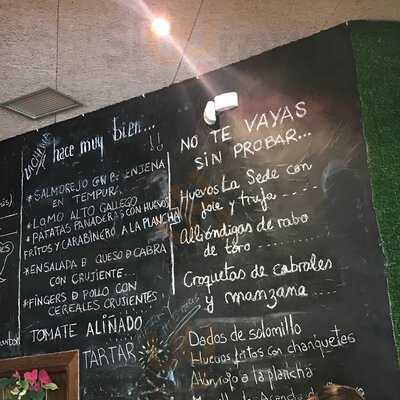 hace muy bien...!!
*SALMOREJO CON BERENJENA
EN TEMPURA
*LOMO ALTO GALLEGO
*PATATAS PANADERAS CON HUEVOS
FRITOS Y CARABINERO A LA PLANCHA
*ENSALADA D QUESO D CABRA
CON CRUJIENTE...
*FINGERS D POLLO CON
CEREALES CRUJIENTES...
TOMATE ALIÑADO
TARTAR
NO TE VAYAS
SIN PROBAR...
Huevos La Sede con
foie y trufa
Albóndigas de rabo
de toro
Croquetas de cabrales
y manzana
Dados de solomillo
Huevos rotos con chanquetes
Atún rojo a la plancha